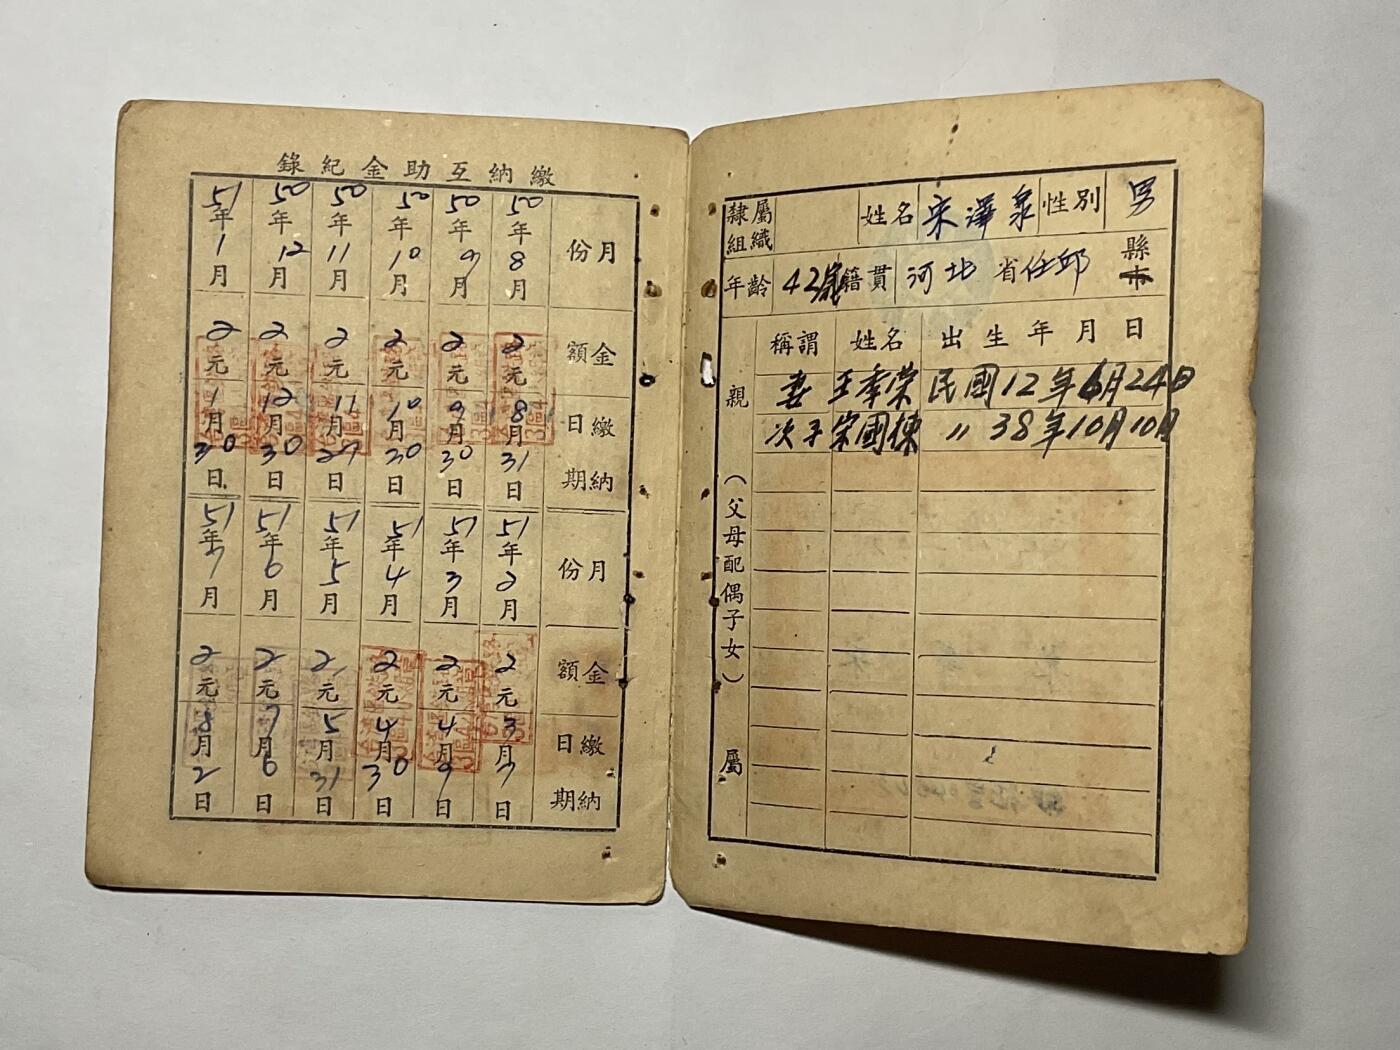 隸屬組織 姓名 宋澤泉 性別 男
年齡 42歲 籍貫 河北 省 任邱 縣市
親（父母配偶子女）屬
稱謂 姓名 出生年月日
妻 王季荣 民國12年6月24日
次子 宋國棟 〃 38年10月10日
繳納互助金紀錄
月份 金額 繳納日期
50年8月 2元 8月31日
50年9月 2元 9月30日
50年10月 2元 10月30日
50年11月 2元 11月27日
50年12月 2元 12月30日
51年1月 2元 1月30日
月份 金額 繳納日期
51年2月 2元 3月7日
51年3月 2元 4月9日
51年4月 2元 4月30日
51年5月 2元 5月31日
51年6月 2元 7月6日
51年7月 2元 8月2日